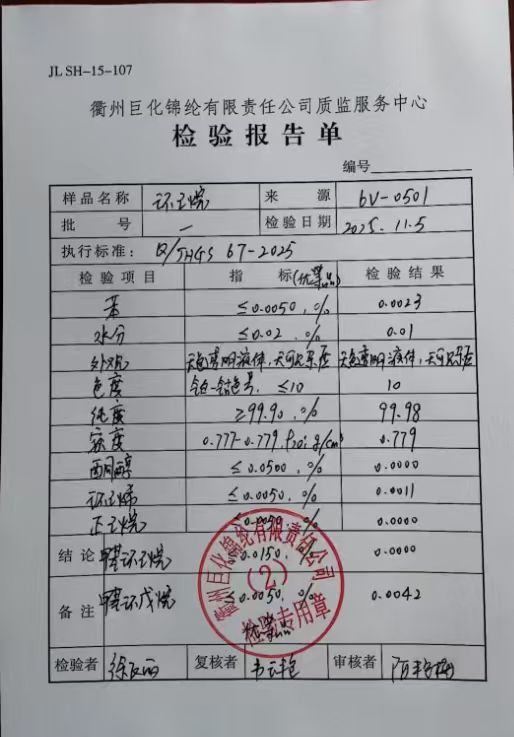 JL SH-15-107
衢州巨化锦纶有限责任公司质监服务中心
检验报告单
编号
样品名称 环己烷 来源 6V-0501
批号 — 检验日期 2025.11.5
执行标准: Q/JHGS 67-2025
检验项目 指标(优等品) 检验结果
苯 ≤0.0050, % 0.0023
水分 ≤0.02, % 0.01
外观 无色透明液体,无可见杂质 无色透明液体,无可见杂质
色度 铂-钴色号, ≤10 10
纯度 ≥99.90, % 99.98
密度 0.777-0.779 ρ20: g/cm³ 0.779
酮醇 ≤0.0500, % 0.0000
环己烯 ≤0.0050, % 0.0011
正己烷 ≤0.0050, % 0.0000
结论 甲基环己烷 0.0150, % 0.0000
备注 甲基环戊烷 0.0050, % 0.0042
优等品
衢州巨化锦纶有限责任公司
(2)
检验专用章
检验者 复核者 审核者